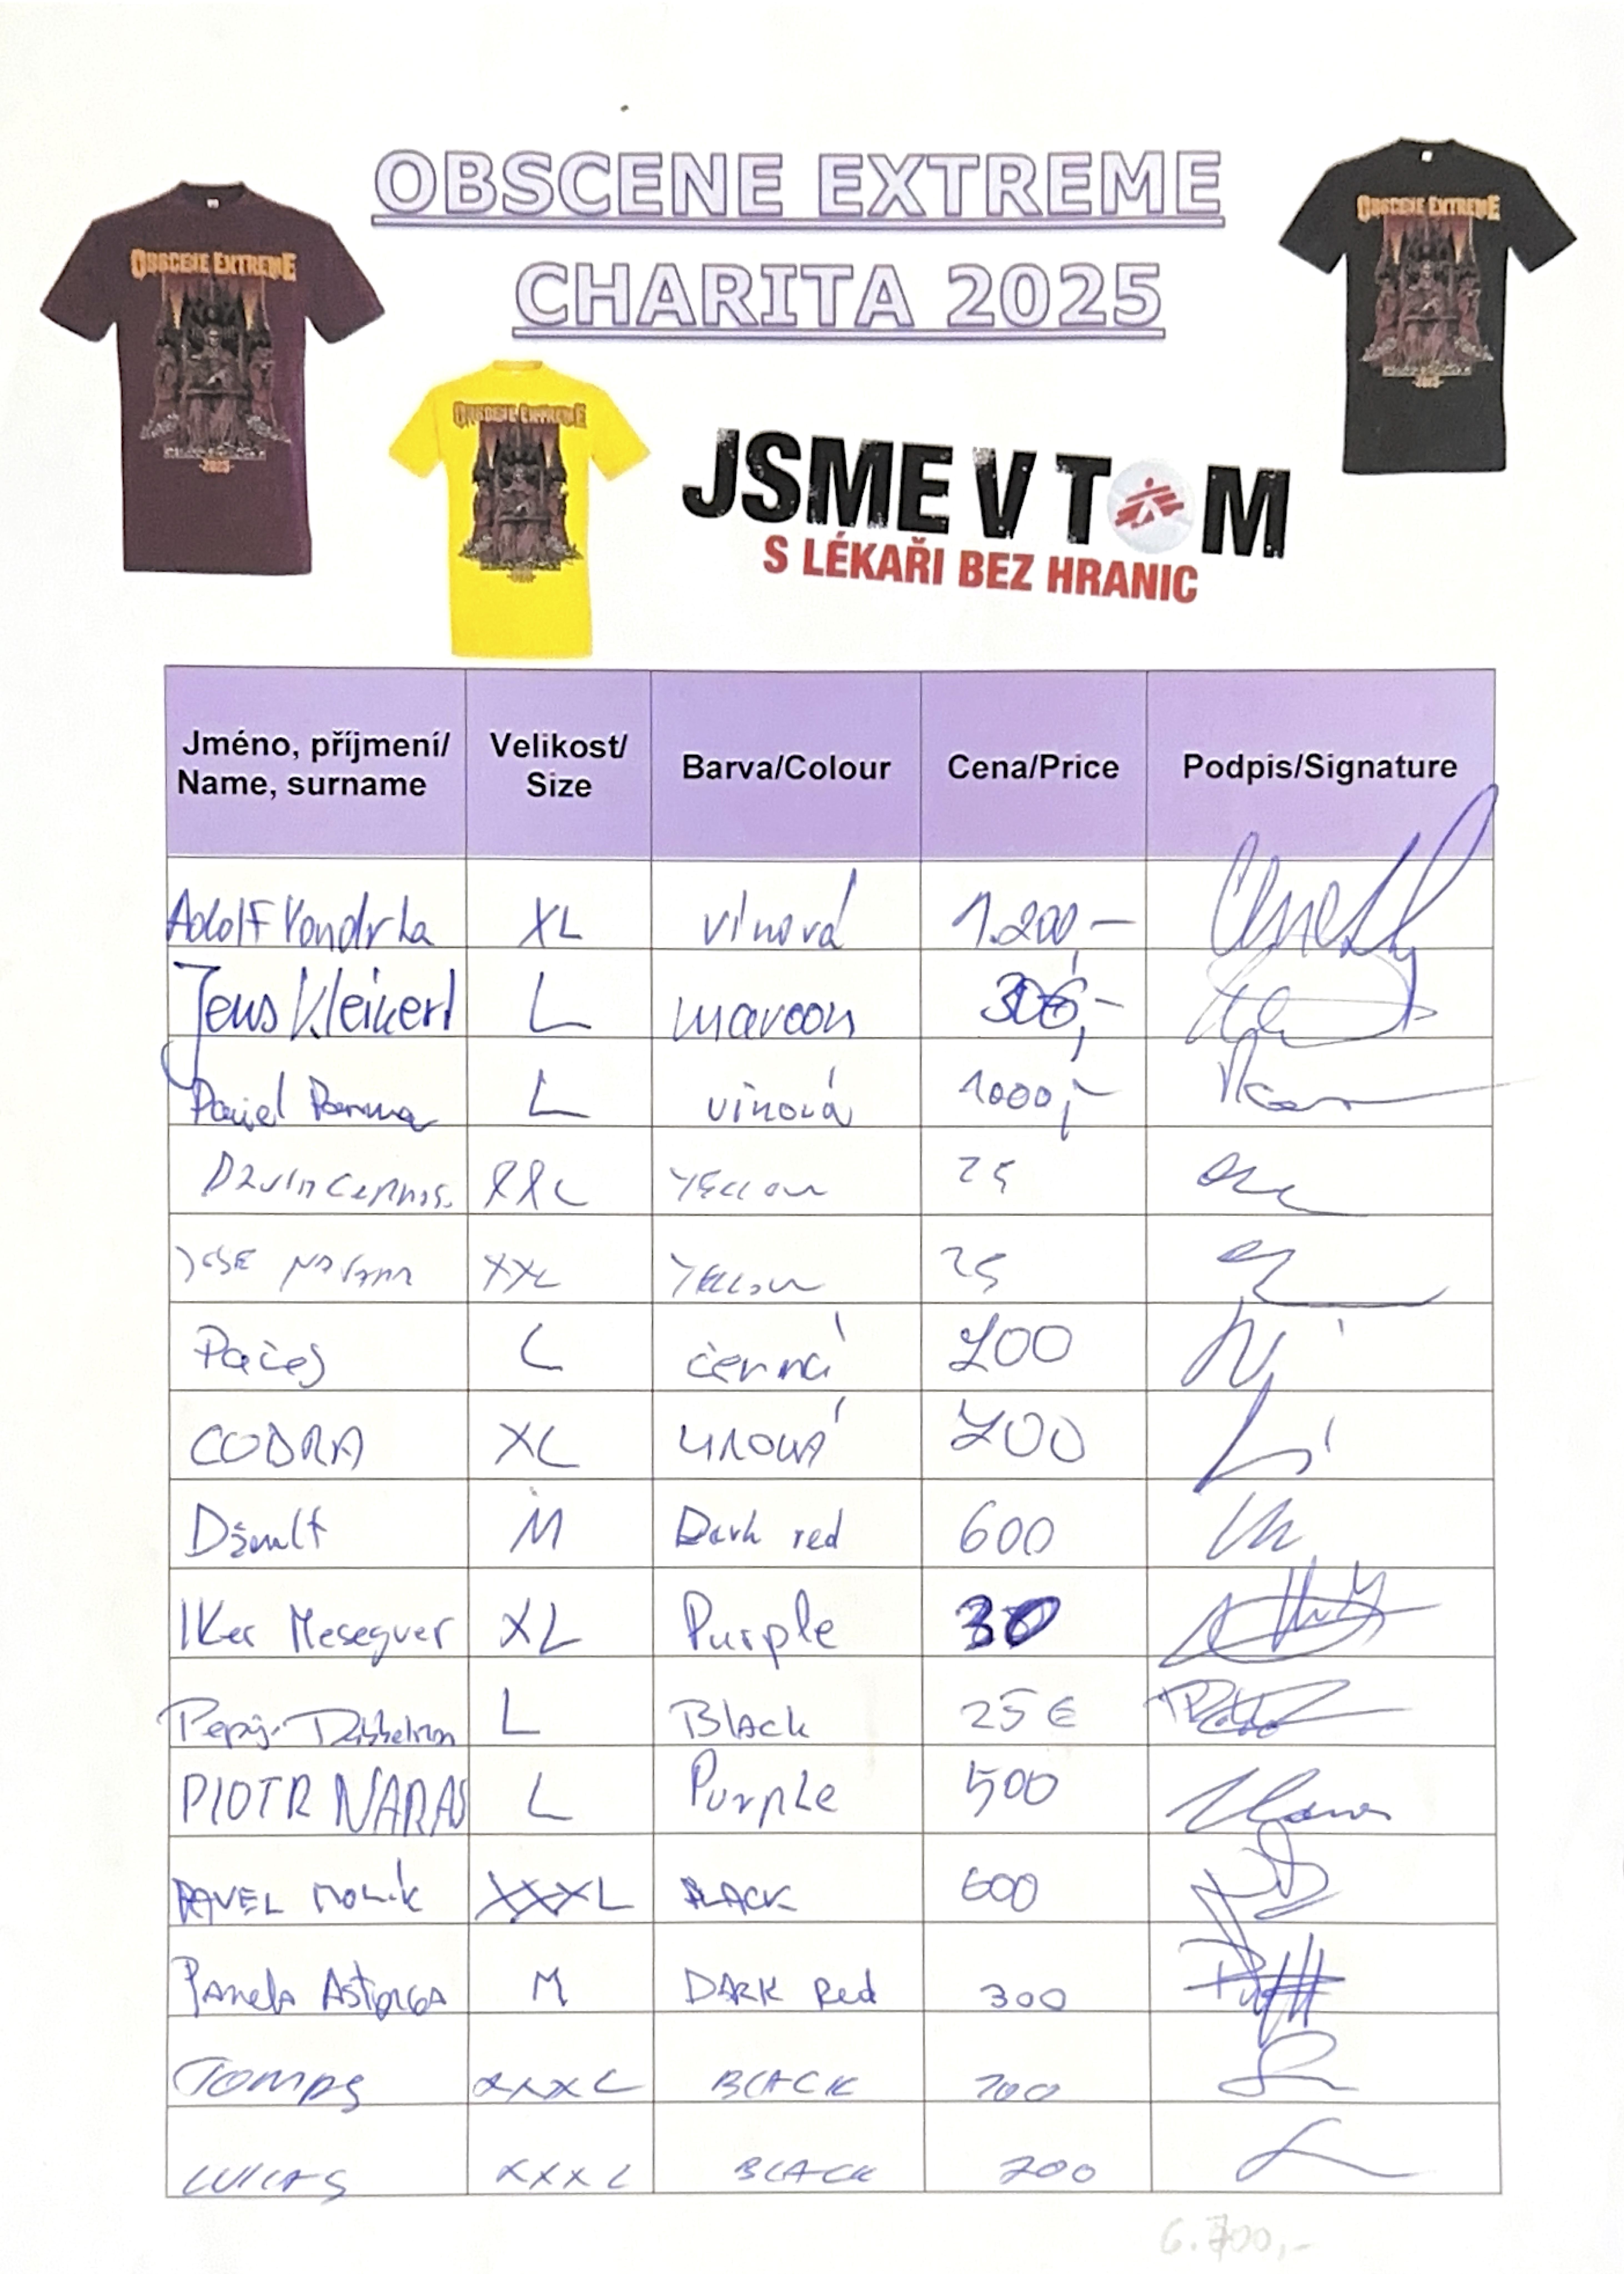 OBSCENE EXTREME
CHARITA 2025
OBSCENE EXTREME
2025
OBSCENE EXTREME
OBSCENE EXTREME
JSME V TOM
S LÉKAŘI BEZ HRANIC
Jméno, příjmení/ Name, surname Velikost/ Size Barva/Colour Cena/Price Podpis/Signature
Adolf Vondrka XL vínová 1.200,-
Jens Kleinert L maroon
L vínová 1000,-
XXL YELLOW 25
JOSE XXL YELLOW 25
Pačes L černá 200
COBRA XL VÍNOVÁ 700
M Dark red 600
IKer Meseguer XL Purple 30
L Black 25 €
PIOTR NARAS L Purple 500
PAVEL XXXL BLACK 600
Pamela Astorga M DARK Red 300
XXXL BLACK 200
LUKAS XXXL BLACK 200
6.700,-